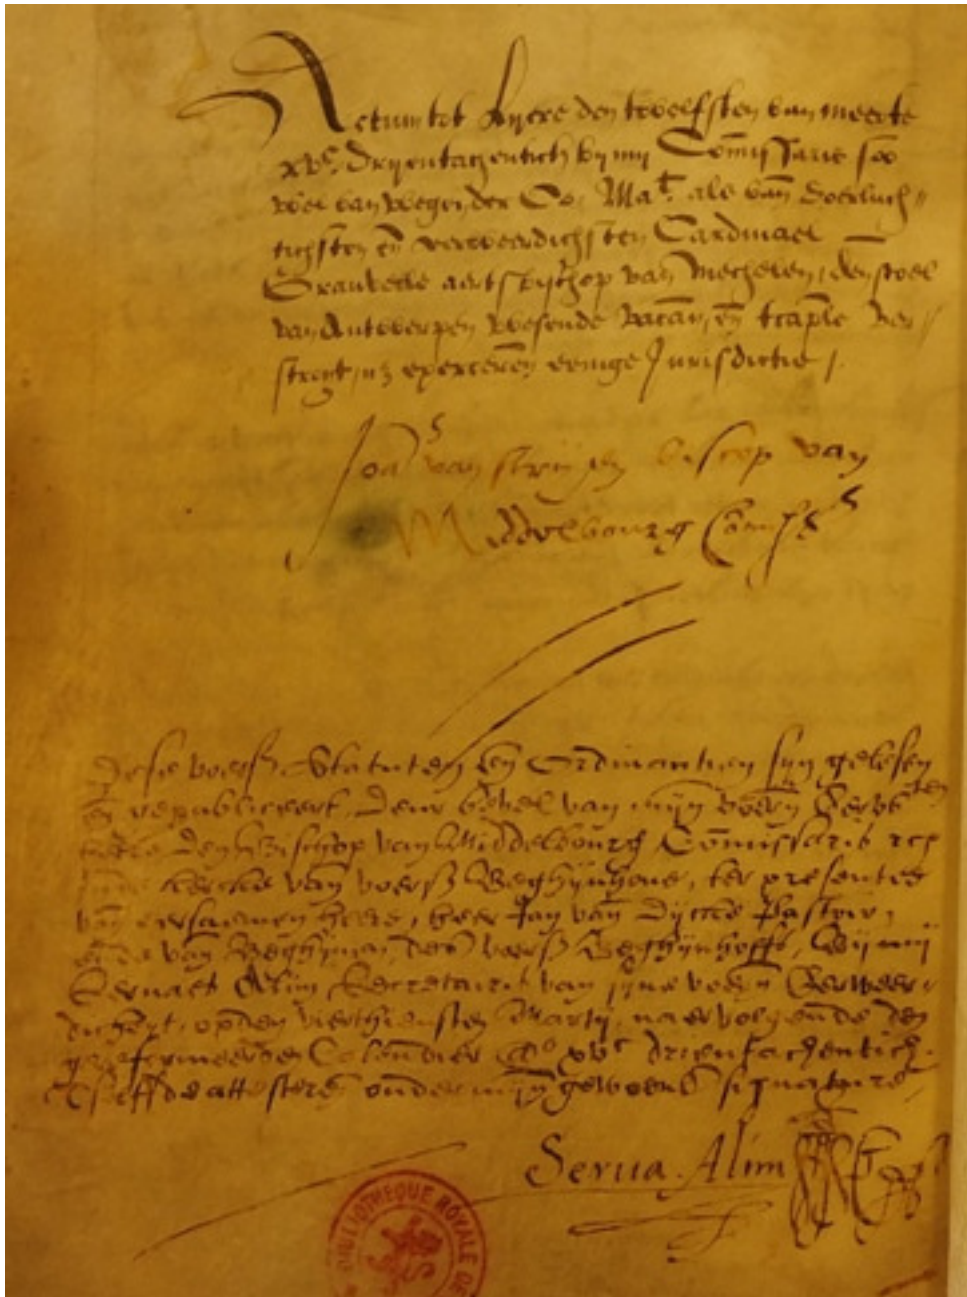 Actum tot Lyere den twelfsten van meerte
xvc. drijentachentich by my Comissaris soo
wel van wegen der Co. Mat. als van doerluch=
tichsten en eerweerdichsten Cardinael
Granvelle aertsbischop van Mechelen, den stoel
van Antwerpen wesende vacan, en tcaple
exerceren eenige Jurisdictie /.
Joas van strijen biscop van
Middelbourg Comiss
Dese voers Statuten en Ordinantien sijn gelesen
en republiceert, deur bevel van mijn
heere den Bischop van Middelbourg Comissaris
kercke van voers Beghijnhove, ter presentie
van eersaemen heere, heer Jan van Dijcke Pastoir,
ende van Beghijnen des voers Beghijnhoffs, Bij mij
Servaes Alim Secretaris van sijne voers Eerweer=
dicheyt, opden vierthiensten Martij, naervolgende den
gereformeerden Calendier Ao xvc drientachentich.
Tselffde attestere onder mijn gewoenl signature
Serua. Alim
BIBLIOTHEQUE ROYALE DE